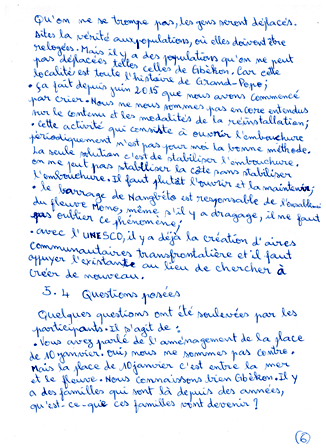 Qu'on ne se trompe pas, les gens seront déplacés.
Dites la vérité aux populations, où elles doivent être
relogées. Mais il y a des populations qu'on ne peut
pas déplacées telles celles de Gbèkon. Car cette
localité est toute l'histoire de Grand-Popo ;
• Ça fait depuis juin 2015 que nous avons commencé
par crier. Nous ne nous sommes pas encore entendus
sur le contenu et les modalités de la réinstallation ;
• Cette activité qui consiste à ouvrir l'embouchure
périodiquement n'est pas pour moi la bonne méthode.
La seule solution c'est de stabiliser l'embouchure.
On ne peut pas stabiliser la côte sans stabiliser
l'embouchure. Il faut plutôt l'ouvrir et la maintenir ;
• le barrage de Nangbéto est responsable de
du fleuve Mono, même s'il y a dragage, il ne faut
pas oublier ce phénomène ;
• avec l'UNESCO, il y a déjà la création d'aires
communautaires transfrontalière et il faut
appuyer l'existante au lieu de chercher à
créer de nouveau.
5.4 Questions posées
Quelques questions ont été soulevées par les
participants. Il s'agit de :
• Vous avez parlé de l'aménagement de la place
de 10 janvier. Oui, nous ne sommes pas contre.
Mais la place de 10 janvier c'est entre la mer
et le fleuve. Nous connaissons bien Gbèkon. Il y
a des familles qui sont là depuis des années,
qu'est-ce-que ces familles vont devenir ?
6